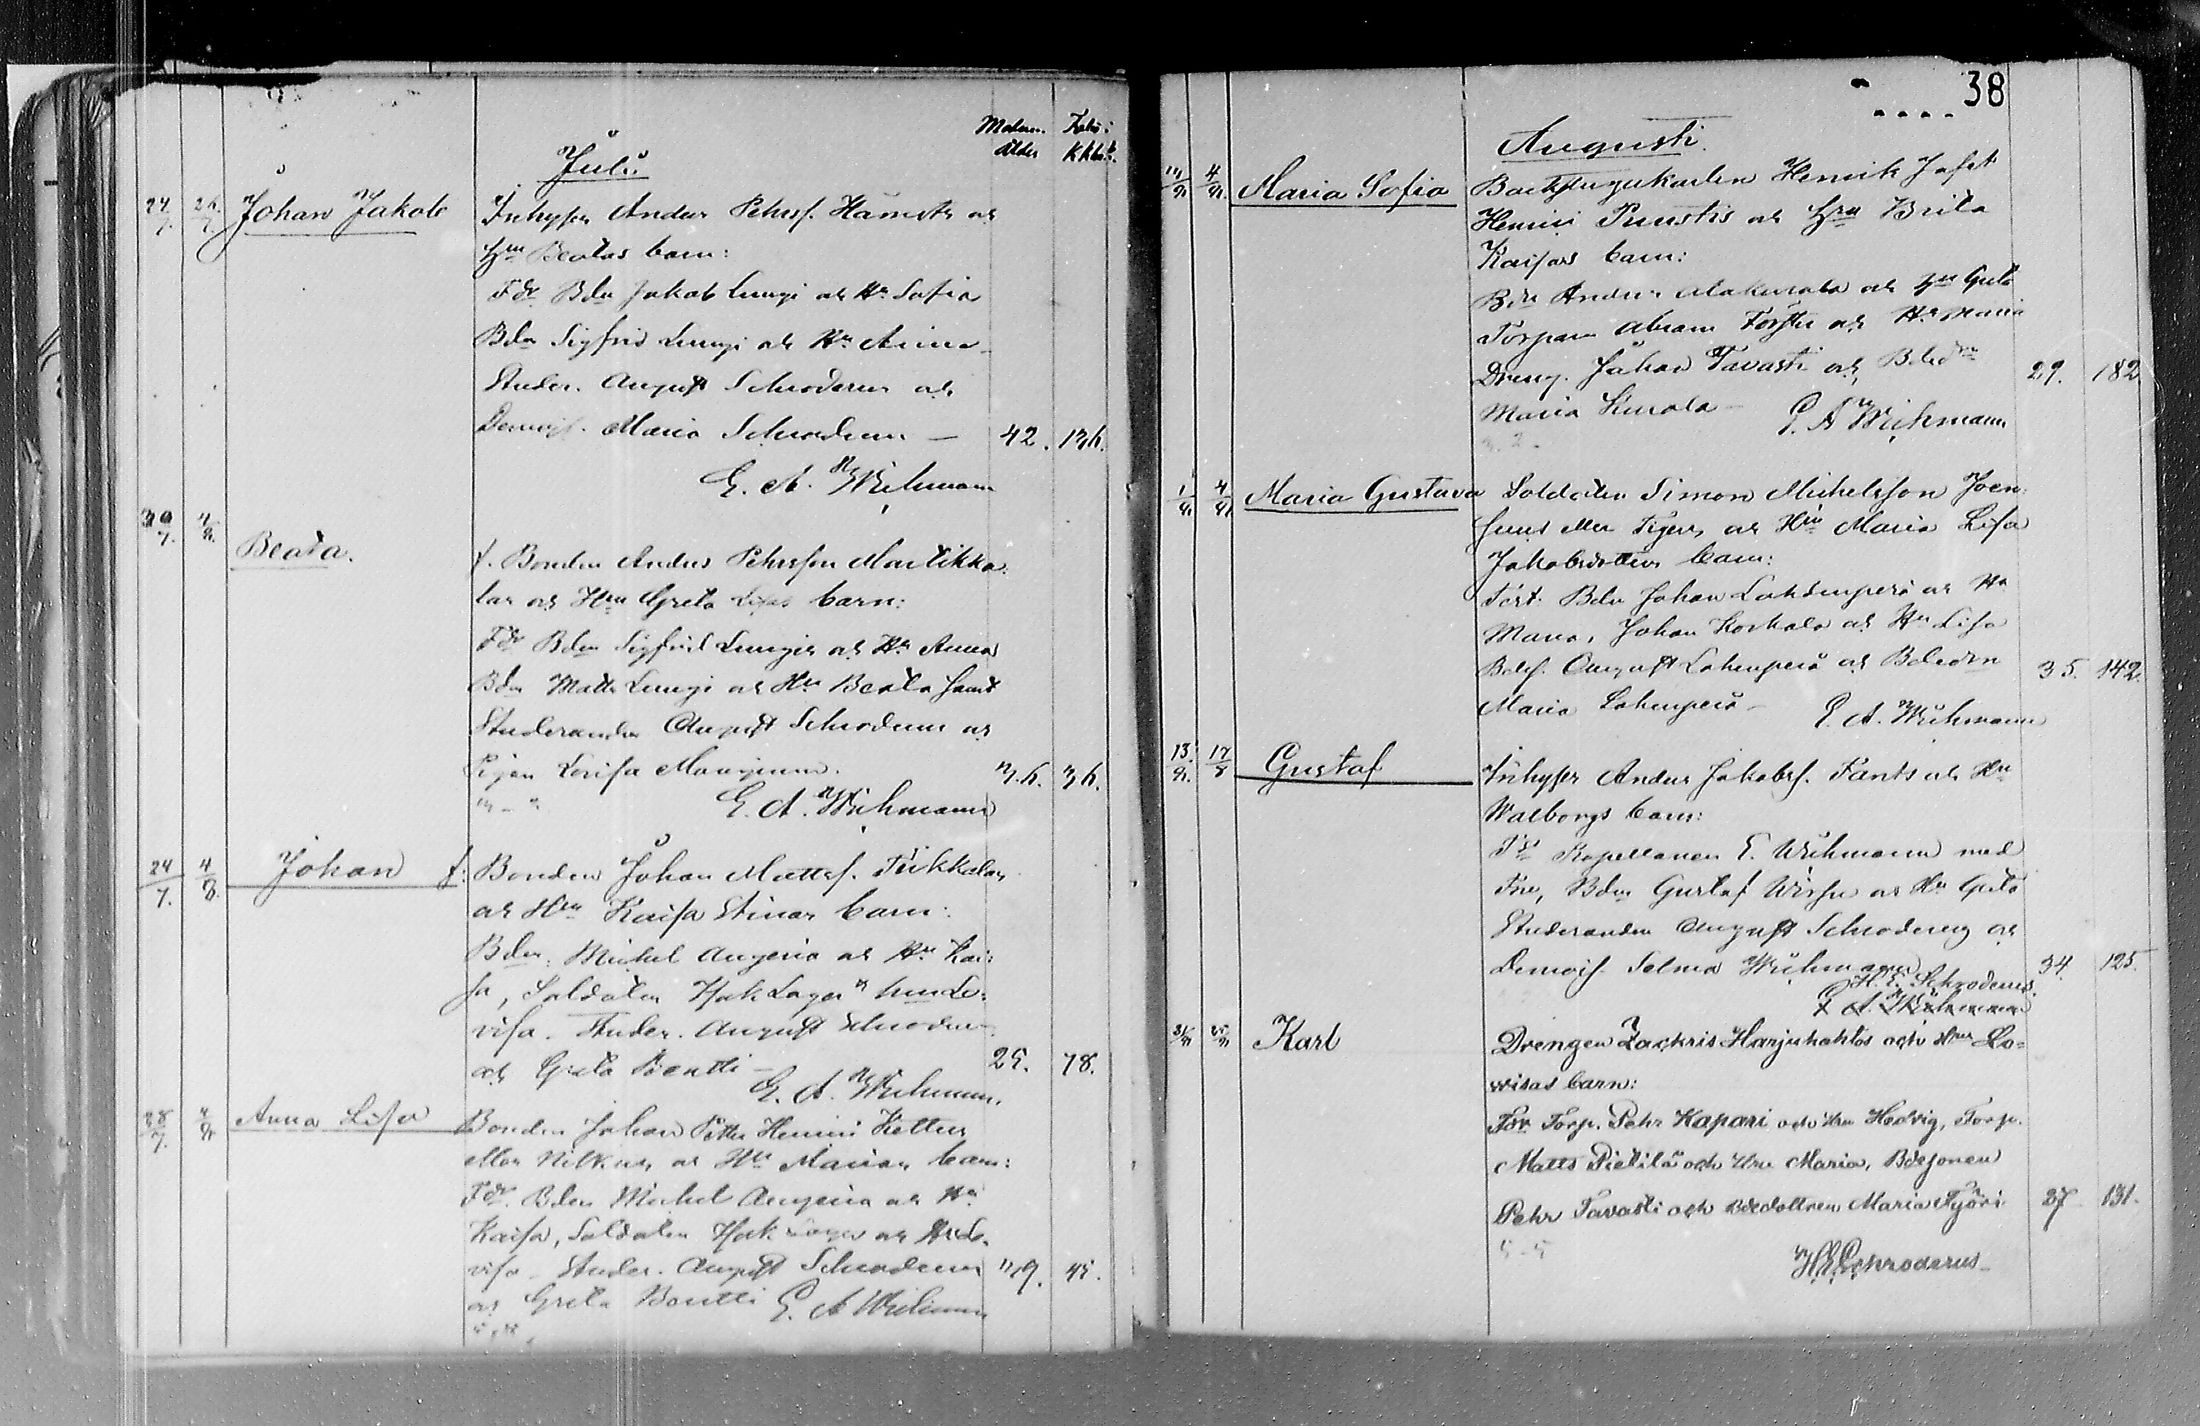 Modern. Folio i
ålder K.kbok.
Juli
24/7. Johan Jakob Inhyses Anders Pehrss. Hämets och
Hru Beatas barn:
Fdr Bdn Jakob Lungi och Hu Sofia
Bdn Sigfrid Lungi och Hu Anna
Studer. August Schroderus och
Demois. Maria Schroderus — 42. 136.
E. A. Wichmann
30/7. 4/8. Beata. f. Bonden Anders Pehrsson Martikka-
las och Hru Greta Lisas barn:
Fdr Bdn Sigfrid Lungis och Hu Annas
Bdn Matts Lungi och Hu Beata samt
Studeranden August Schroderus och
Pigan Lovisa 36.
E. A. Wichmann
24/7. 4/8. Johan f. Bonden Johan Mattss. Tukkalas
och Hru Kaisa Stinas barn:
Bdn. Michel Angeria och Hu Kai-
sa, Soldaten Isak Lager o hu Lo-
visa. Studer. August Schroderus
och Greta Pöntti — 25. 78.
E. A. Wichmann.
28/7. 4/8. Anna Lisa Bonden Johan Petter Henrici Kettus
eller och Hu Marias barn:
Fdr. Bdn Michel Angeria och Hu
Kaisa, Soldaten Isak Lager och Hu Lo-
visa. Studer. August Schroderus 45.
och Greta E. A. Wichmann
38
Augusti.
4/8. Maria Sofia Backstugukarlen Henrik Josef
Henrici Puustis och Hru Brita
Kaisas barn:
Bdn Anders Alakurala och Hu Greta
Torparn Abram Torster och Hu Maria
Dreng. Johan Tavasti och Bdedn
Maria Kurala — 29. 182
E. A. Wichmann
1/8. 4/8. Maria Gustava Soldaten Simon Michelsson Joen-
suus eller Tigers och Hru Maria Lisa
Jakobsdotters barn:
Bdn Johan Lahdenperä och Hu
Maria, Johan Korkala och Hu Lisa
Bdes. August Lahenperä och Bdedrn
Maria Lahenperä — 35. 142.
E. A. Wichmann
13/8. 17/8 Gustaf Inhyses Anders Jakobss. Fants och Hru
Walborgs barn:
Fdr Kapellanen E. Wichmann med
Fru, Bdn Gustaf och Hu Greta
Studeranden August Schroderus och
Demois. Selma Wichmann 34. 125.
H. E. Schroderus.
E. A. Wichmann
Karl Drengen Zackris Harjukahtos och Hrus Lo-
visas barn:
Fdr Torp. Pehr Kapari och Hu Hedvig, Torp.
Matts Pietilä och Hru Maria, Bdesonen
Pehr Tavasti och Bdedottren Maria Työri 37 131.
5-5
H. E. Schroderus